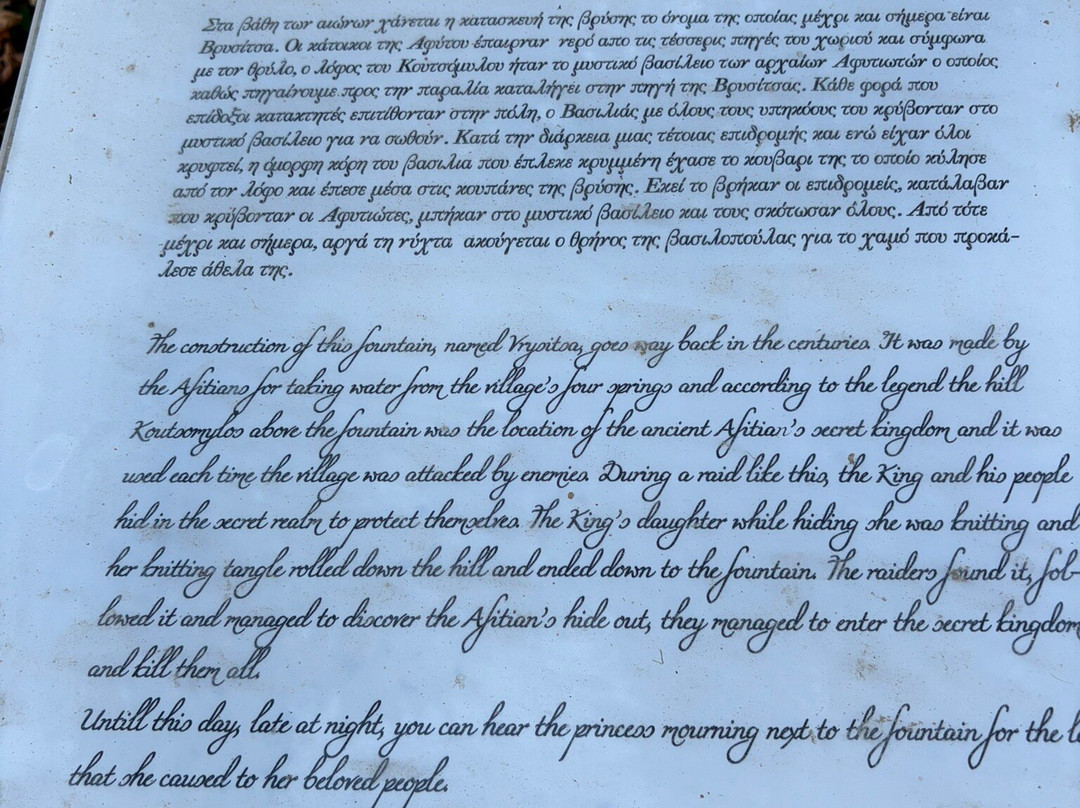 Στα βάθη των αιώνων χάνεται η κατασκευή της βρύσης το όνομα της οποίας μέχρι και σήμερα είναι
Βρυσίτσα. Οι κάτοικοι της Αφύτου έπαιρναν νερό απο τις τέσσερις πηγές του χωριού και σύμφωνα
με τον θρύλο, ο λόφος του Κουτσόμυλου ήταν το μυστικό βασίλειο των αρχαίων Αφυτιωτών ο οποίος
καθώς πηγαίνουμε προς την παραλία καταλήγει στην πηγή της Βρυσίτσας. Κάθε φορά που
επίδοξοι κατακτητές επιτίθονταν στην πόλη, ο Βασιλιάς με όλους τους υπηκόους του κρύβονταν στο
μυστικό βασίλειο για να σωθούν. Κατά την διάρκεια μιας τέτοιας επιδρομής και ενώ είχαν όλοι
κρυφτεί, η όμορφη κόρη του βασιλιά που έπλεκε κρυμμένη έχασε το κουβαρι της το οποίο κύλησε
από τον λόφο και έπεσε μέσα στις κουπάνες της βρύσης. Εκεί το βρήκαν οι επιδρομείς, κατάλαβαν
που κρύβονταν οι Αφυτιώτες, μπήκαν στο μυστικό βασίλειο και τους σκότωσαν όλους. Από τότε
μέχρι και σήμερα, αργά τη νύχτα ακούγεται ο θρήνος της βασιλοπούλας για το χαμό που προκά-
λεσε άθελα της.
The construction of this fountain, named Vrysitsa, goes way back in the centuries. It was made by
the Afitians for taking water from the village's four springs and according to the legend the hill
Koutsomylos above the fountain was the location of the ancient Afitian's secret kingdom and it was
used each time the village was attacked by enemies. During a raid like this, the King and his people
hid in the secret realm to protect themselves. The King's daughter while hiding she was knitting and
her knitting tangle rolled down the hill and ended down to the fountain. The raiders found it, fol-
lowed it and managed to discover the Afitian's hide out, they managed to enter the secret kingdom
and kill them all.
Untill this day, late at night, you can hear the princess mourning next to the fountain for the
that she caused to her beloved people.